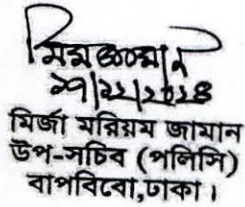 ২৭/১১/২০২৪
মির্জা মরিয়ম জামান
উপ-সচিব (পলিসি)
বাপবিবো,ঢাকা।